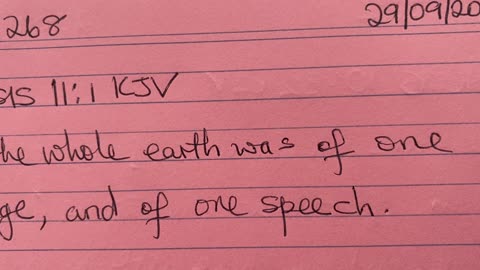 268 29/09/20
11:1 KJV
he whole earth was of one
ge, and of one speech.